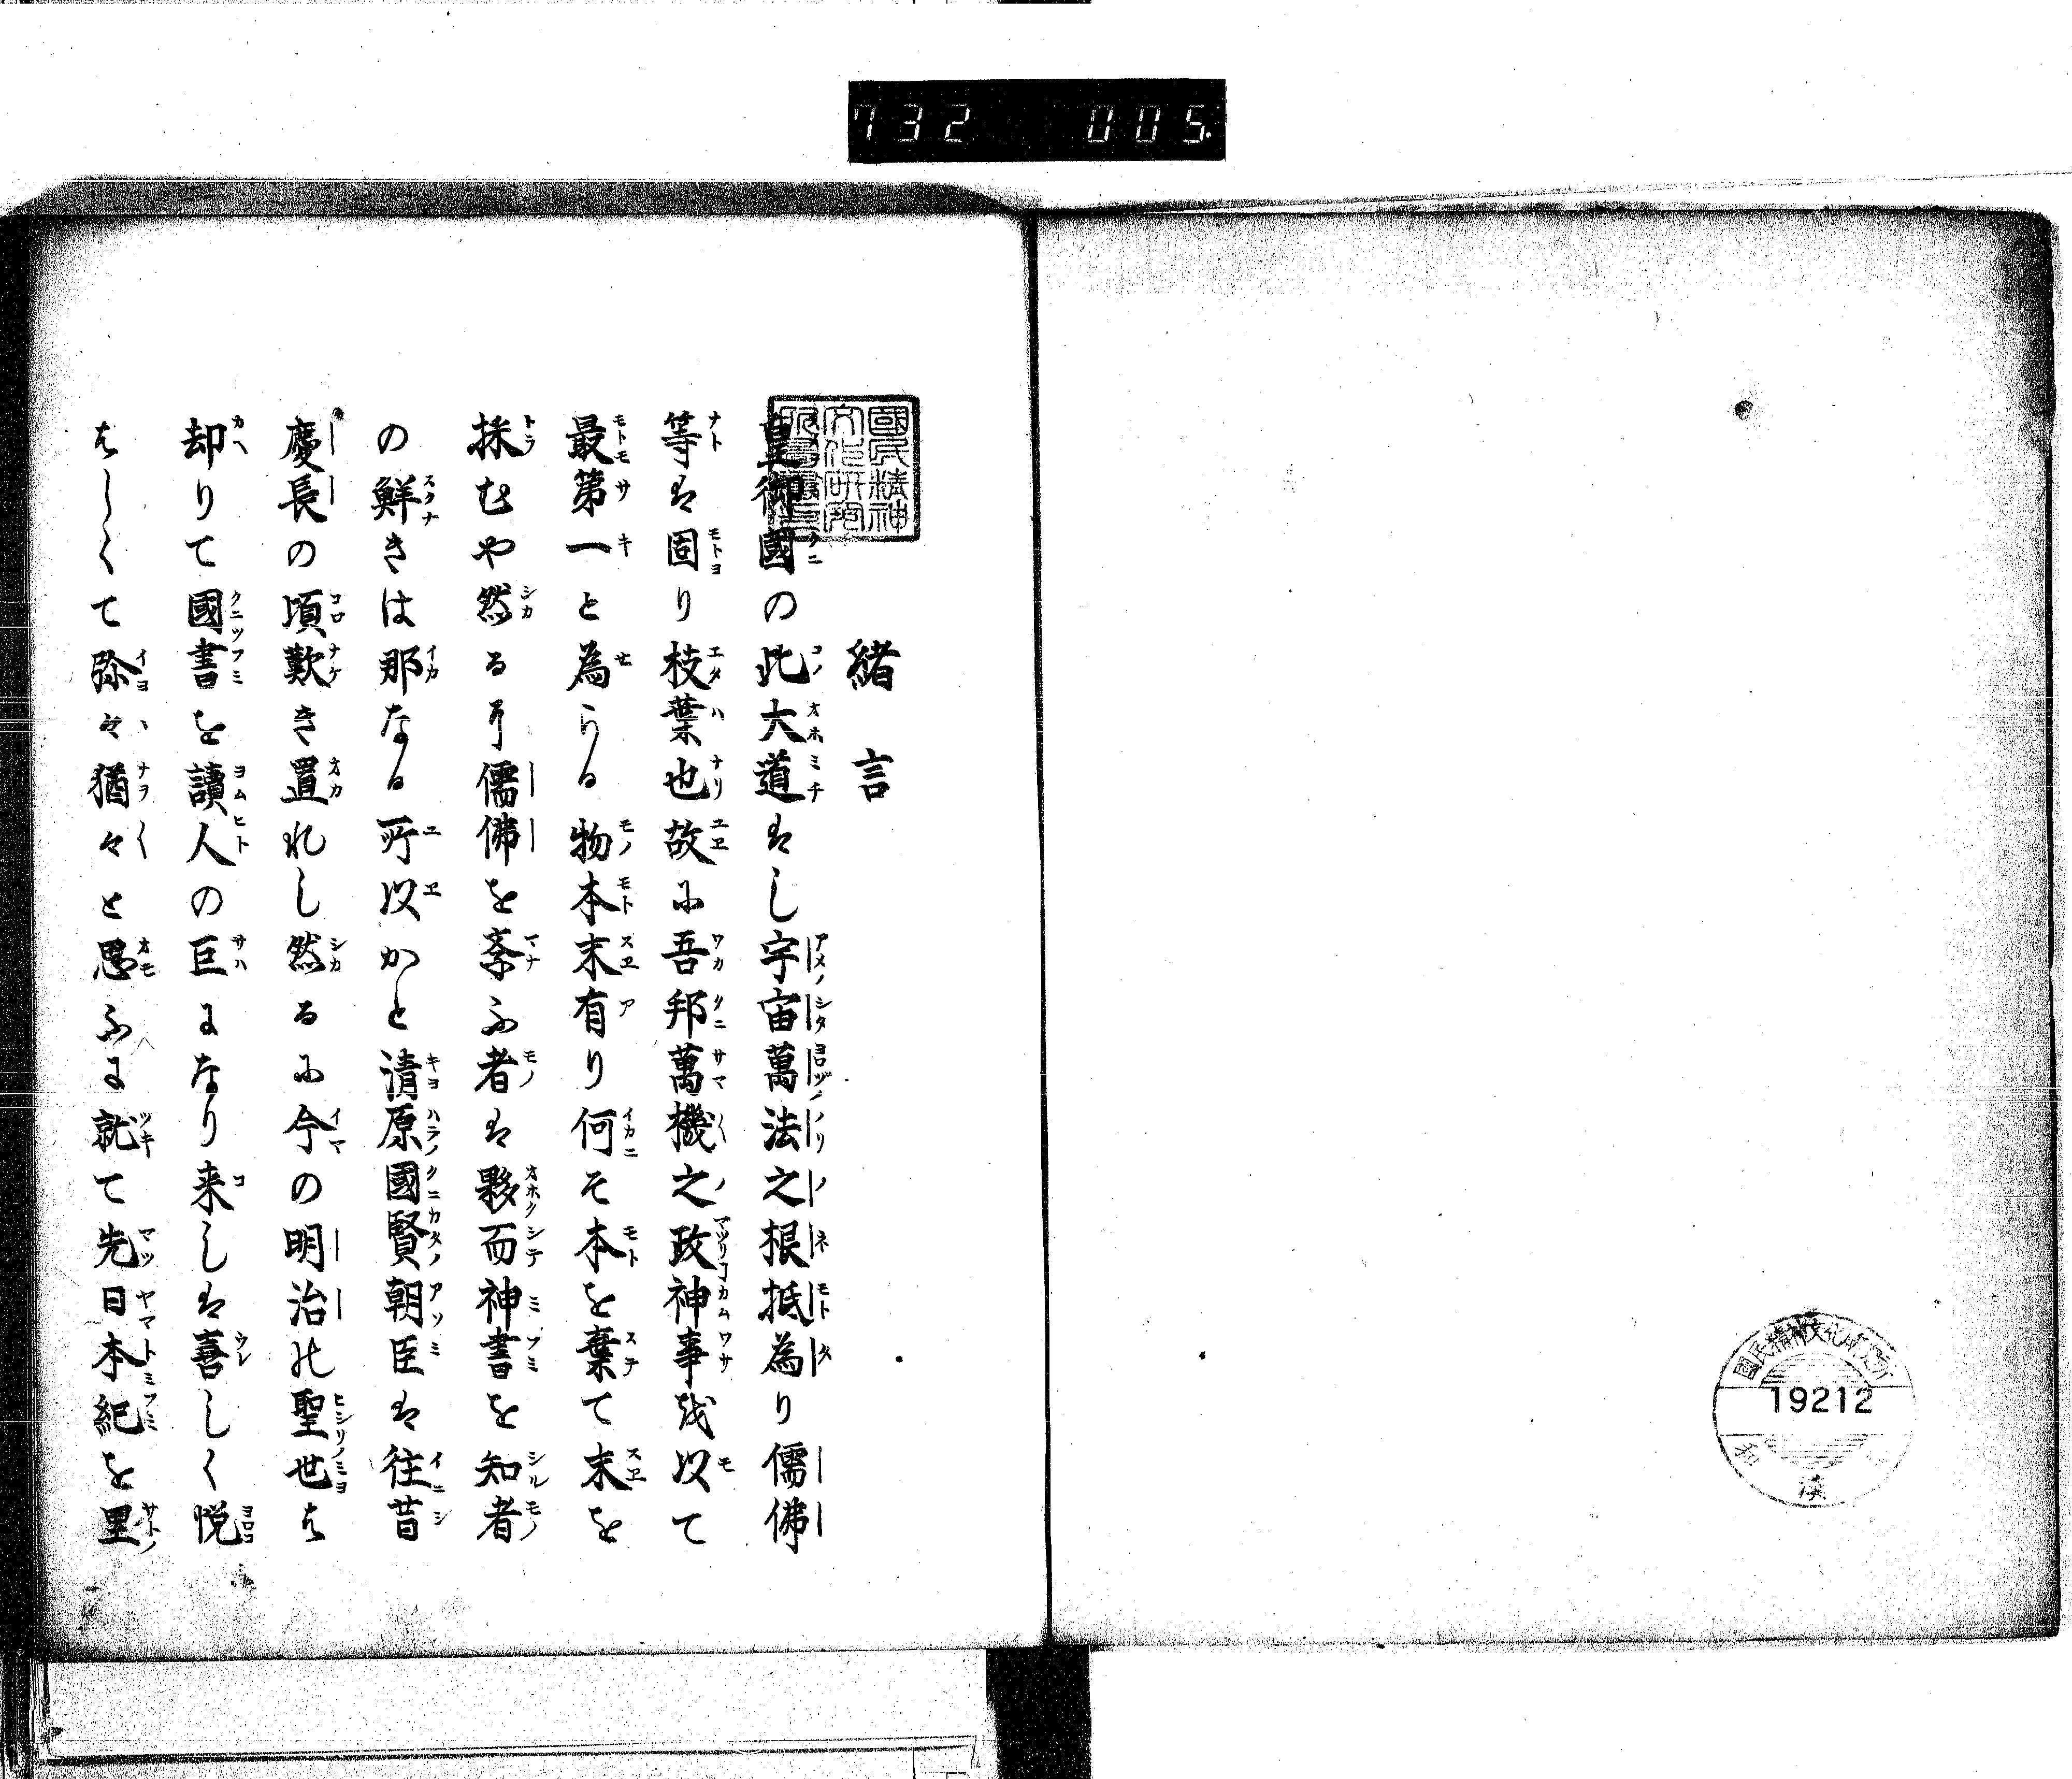 732 005
緒言
皇御國の此大道はし宇宙萬法之根抵為り儒佛
等は固り枝葉也故に吾邦萬機之政神事我以て
最第一と為らる物本末有り何そ本を棄て末を
採むや然る可儒佛を斈ふ者は夥而神書を知者
の鮮きは那なる所以かと清原國賢朝臣は往昔
慶長の頃歎き置れし然るに今の明治の聖世は
却りて國書を讀人の巨になり来しは喜しく悦
はしくて弥々猶々と思ふに就て先日本紀を里
國民精神文化研究所
國民精神文化研究所
19212
和
漢